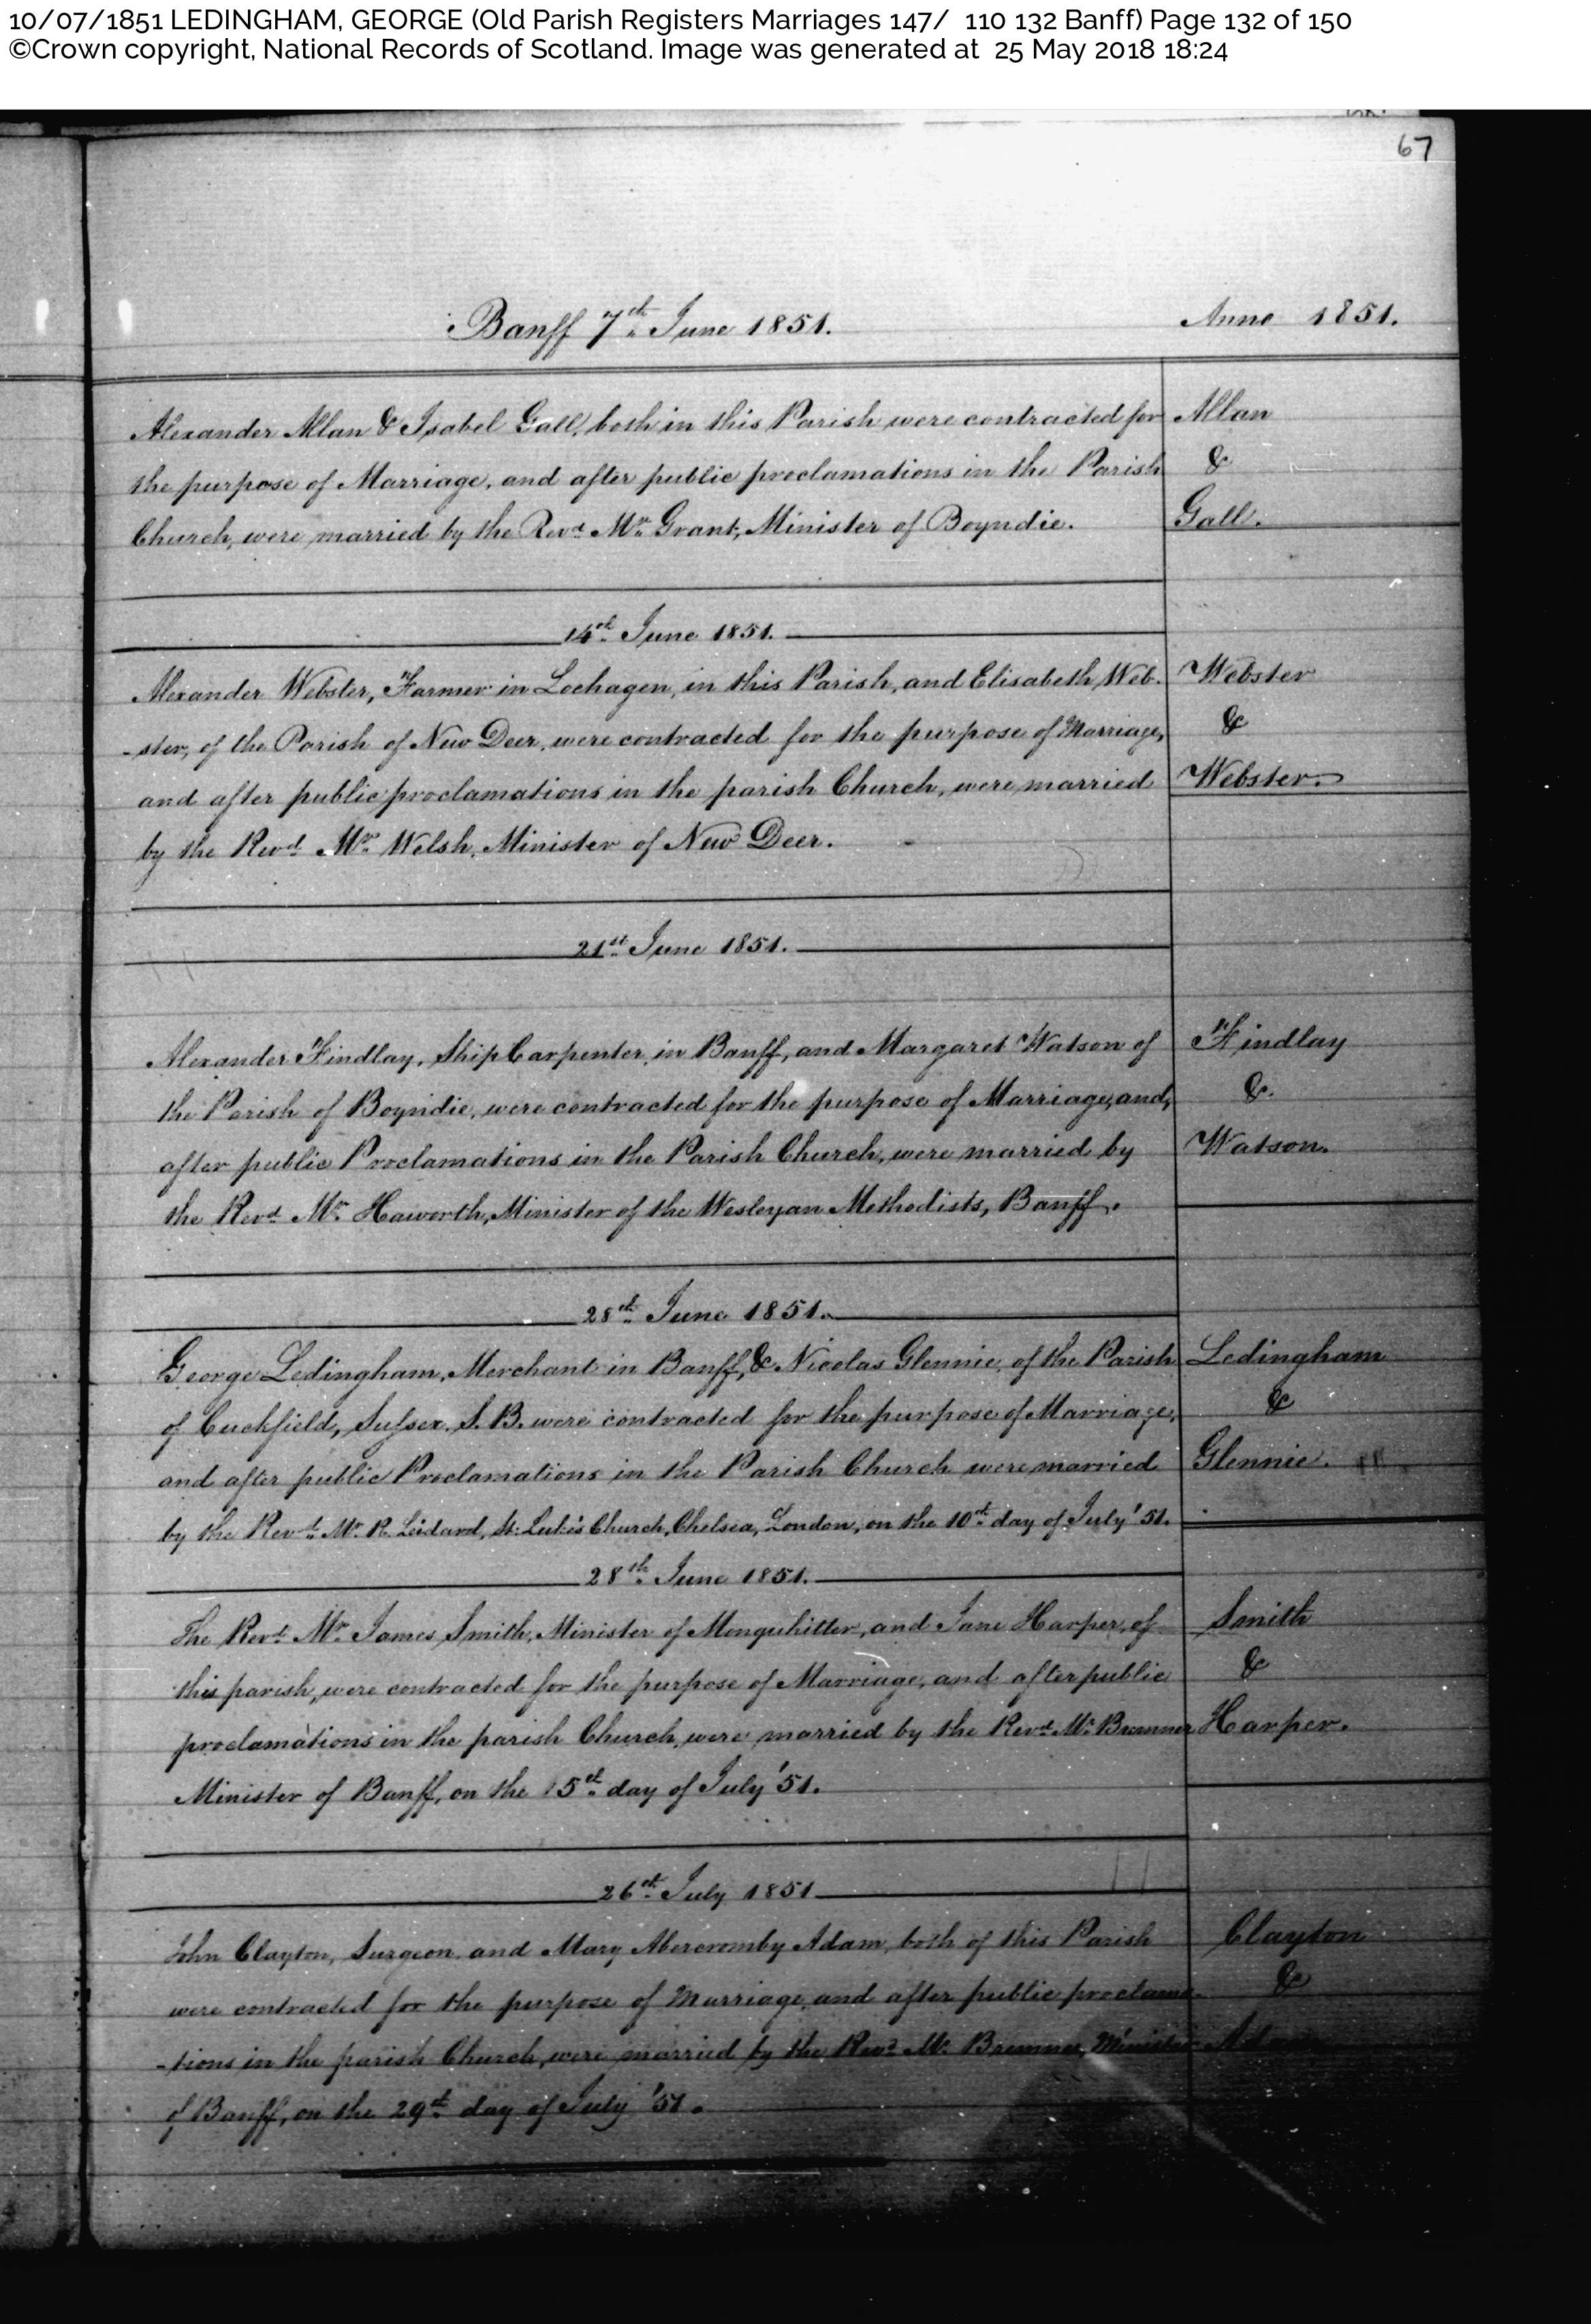 10/07/1851 LEDINGHAM, GEORGE (Old Parish Registers Marriages 147/  110 132 Banff) Page 132 of 150
©Crown copyright, National Records of Scotland. Image was generated at  25 May 2018 18:24
67
Banff 7th June 1851.
Anno 1851.
Alexander Allan & Isabel Gall, both in this Parish were contracted for
the purpose of Marriage, and after public proclamations in the Parish
Church, were married by the Revd. Mr. Grant, Minister of Boyndie.
Allan
&
Gall.
14th June 1851.
Alexander Webster, Farmer in Lochagen, in this Parish, and Elisabeth Web-
-ster, of the Parish of New Deer, were contracted for the purpose of Marriage,
and after public proclamations in the parish Church, were married
by the Revd. Mr. Welsh, Minister of New Deer.
Webster
&
Webster.
21st June 1851.
Alexander Findlay, Ship Carpenter in Banff, and Margaret Watson of
the Parish of Boyndie, were contracted for the purpose of Marriage, and,
after public Proclamations in the Parish Church, were married by
the Revd. Mr. Haworth, Minister of the Wesleyan Methodists, Banff.
Findlay
&
Watson.
28th June 1851.
George Ledingham, Merchant in Banff, & Nicolas Glennie, of the Parish
of Cuckfield, Sussex, S.B. were contracted for the purpose of Marriage,
and after public Proclamations in the Parish Church were married
by the Revd. Mr. R. Leidard, St. Luke's Church, Chelsea, London, on the 10th day of July '51.
Ledingham
&
Glennie.
28th June 1851.
The Revd. Mr. James Smith, Minister of Monquhitter, and Jane Harper, of
this parish, were contracted for the purpose of Marriage, and after public
proclamations in the parish Church, were married by the Revd. Mr. Bremner
Minister of Banff, on the 15th day of July '51.
Smith
&
Harper.
26th July 1851
John Clayton, Surgeon and Mary Abercromby Adam, both of this Parish
were contracted for the purpose of Marriage, and after public proclama-
-tions in the parish Church, were married by the Revd. Mr. Bremner, Minister
of Banff, on the 29th day of July '51.
Clayton
&
Adam